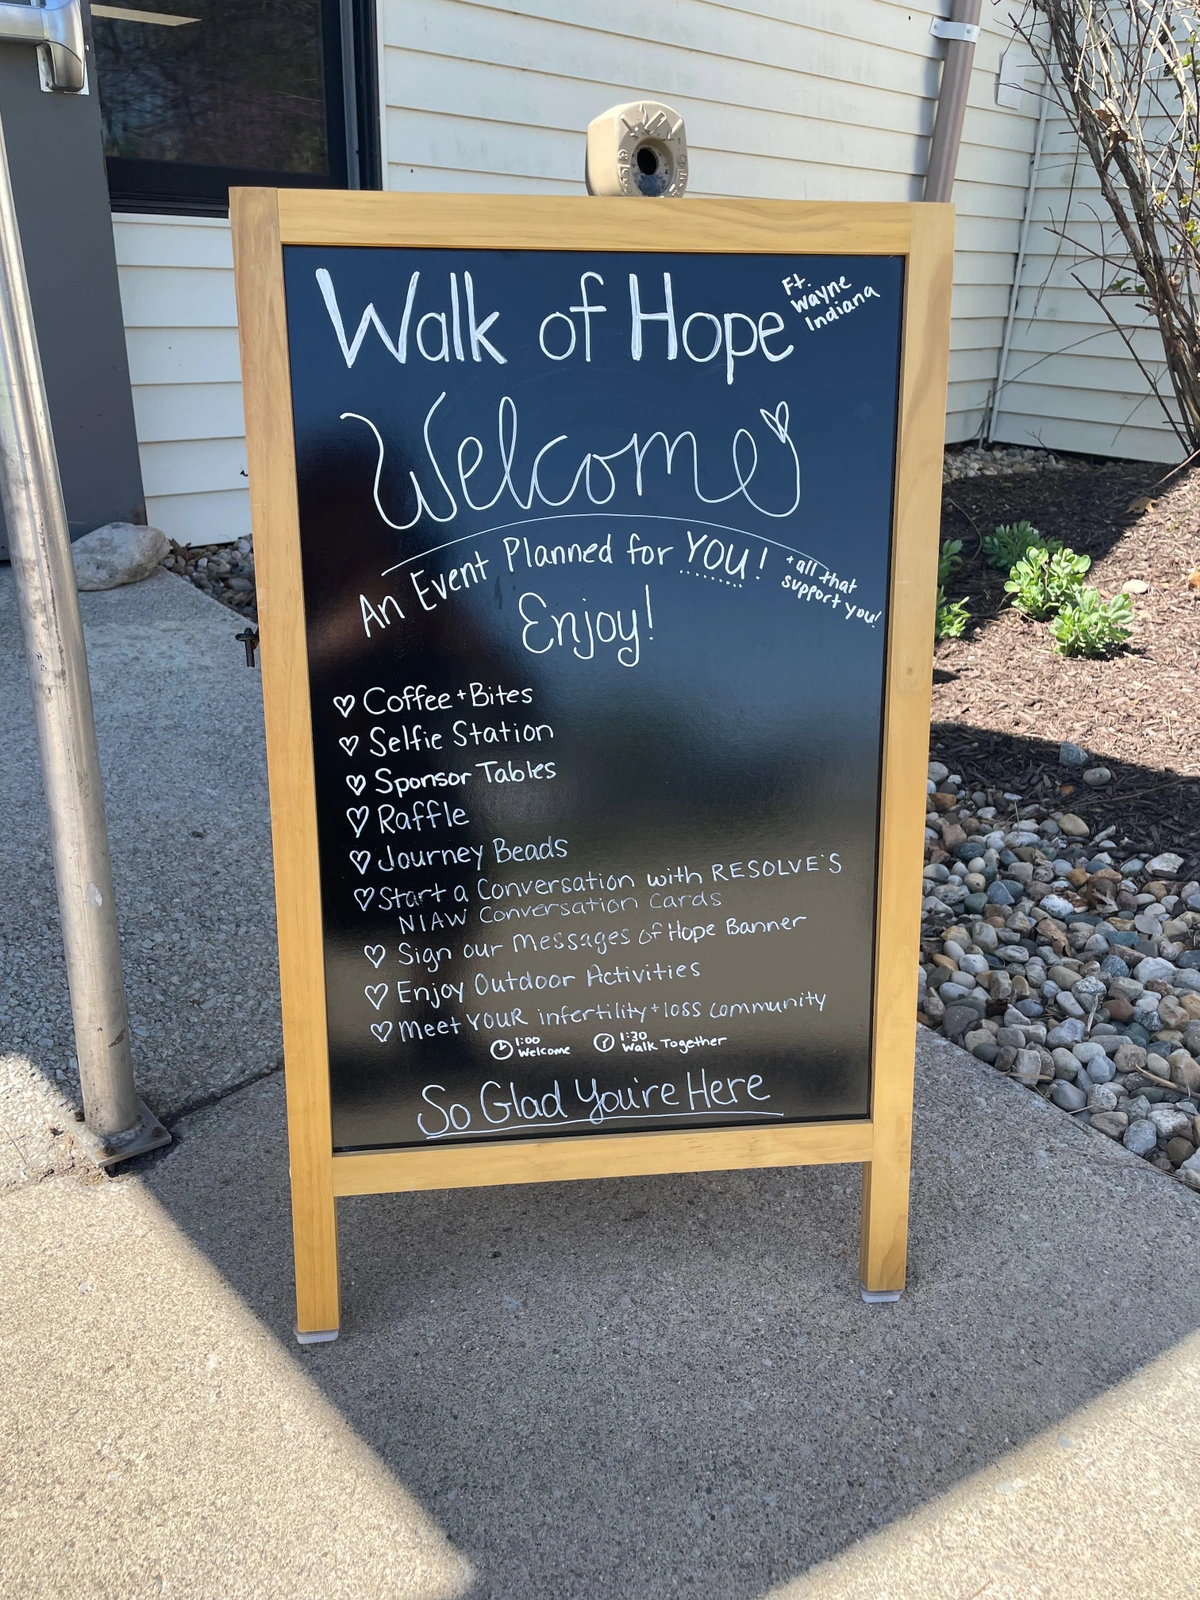 Walk of Hope
Ft.
Wayne
Indiana
Welcome
An Event Planned for YOU!
+ all that
support you!
Enjoy!
♡ Coffee + Bites
♡ Selfie Station
♡ Sponsor Tables
♡ Raffle
♡ Journey Beads
♡ Start a Conversation with RESOLVE'S
NIAW Conversation Cards
♡ Sign our Messages of Hope Banner
♡ Enjoy Outdoor Activities
♡ Meet YOUR infertility + loss community
1:00 Welcome
1:30 Walk Together
So Glad You're Here